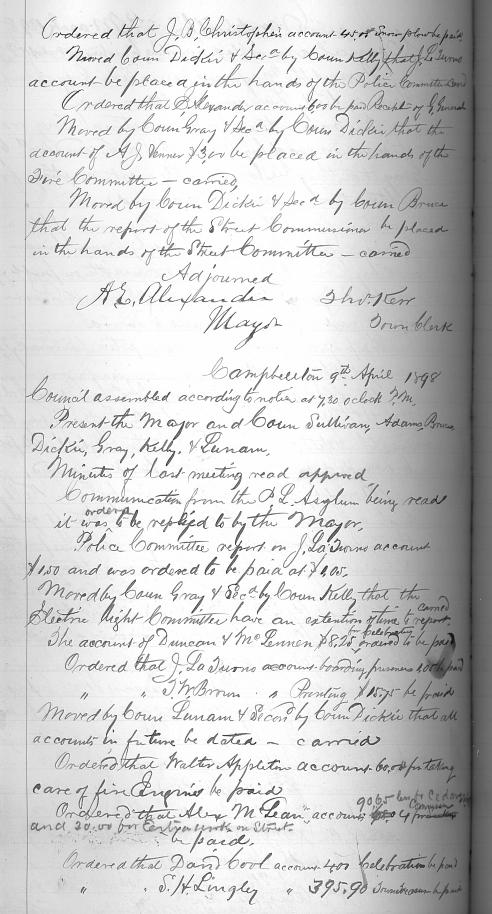 Ordered that J. B. Christopher account 45.08 Snow plow be paid
Moved Coun Dickie & Secd by Coun Kelly that J. La
account be placed in the hands of the Police Committee
Ordered that Alexander account 6.00 be paid Receipt of G.
Moved by Coun Gray & Secd by Coun Dickie that the
account of A J Venner $3,00 be placed in the hands of the
Fire Committee – carried
Moved by Coun Dickie & Secd by Coun Bruce
that the report of the Street Commissioner be placed
in the hands of the Street Committee – carried
Adjourned
A E. Alexander Thos. Kerr
Mayor Town Clerk
Campbellton 9th April 1898
Council assembled according to notice at 7,30 oclock P.M.
Present the Mayor and Coun Sullivan, Adams, Bruce
Dickie, Gray, Kelly, & Lunam.
Minutes of last meeting read approved
Communication from the P. L. Asylum being read
ordered
it was to be replied to by the Mayor,
Police Committee report on J. La account
$1.50 and was ordered to be paid at $1,05.
Moved by Coun Gray & Secd by Coun Kelly that the
carried
Electric Light Committee have an extention of time to report.
Celebration
The account of Duncan & McLennen $8,25 ordered to be paid
Ordered that J. La account boarding prisoners 1,00 be paid
" " T. W. Brown " Printing $15.75 be paid
Moved by Coun Lunam & Second by Coun Dickie that all
accounts in future be dated – carried
Ordered that Walter Appleton account 60.00 for taking
care of fire Engine be paid
90.65
Ordered that Alex McLean account
and 30.00 for work on Street.
be paid.
Ordered that David Cool account 4.00 Celebration be paid
" " S. H. Lingley " 395.90 be paid